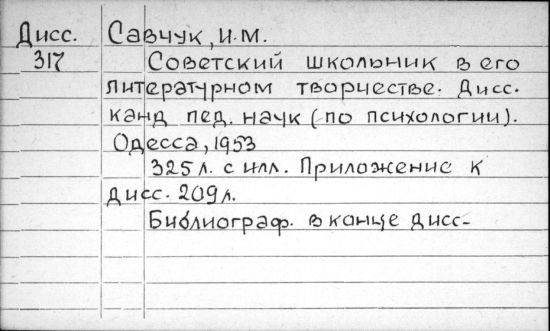 Дисс. Савчук, И.М.
317 Советский школьник в его
литературном творчестве. Дисс.
канд пед. наук (по психологии).
Одесса, 1953
325 л. с илл. Приложение к
дисс. 209 л.
Библиограф. в конце дисс-